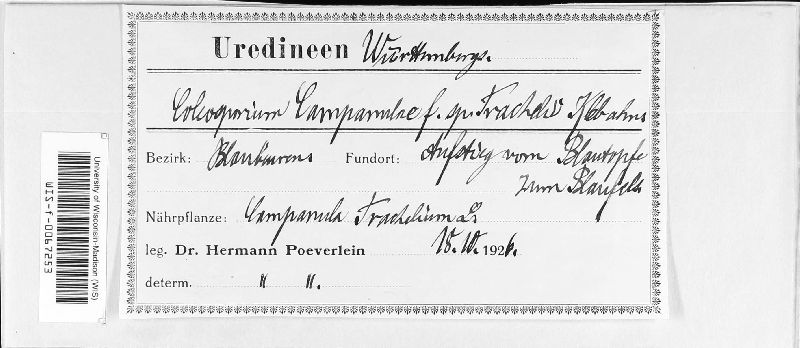 Uredineen Württembergs.
Coleosporium Campanulae f. sp. Trachelii Klebahns
Bezirk: Blaubeurens Fundort: Aufstieg vom Blautopfe
zum Blaufels
Nährpflanze: Campanula Trachelium L.
leg. Dr. Hermann Poeverlein 18.10.1926.
determ. " ".
University of Wisconsin-Madison (WIS)
WIS-f-0067253